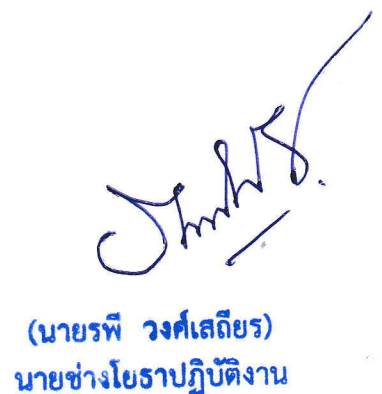 (นายรพี วงศ์เสถียร)
นายช่างโยธาปฏิบัติงาน